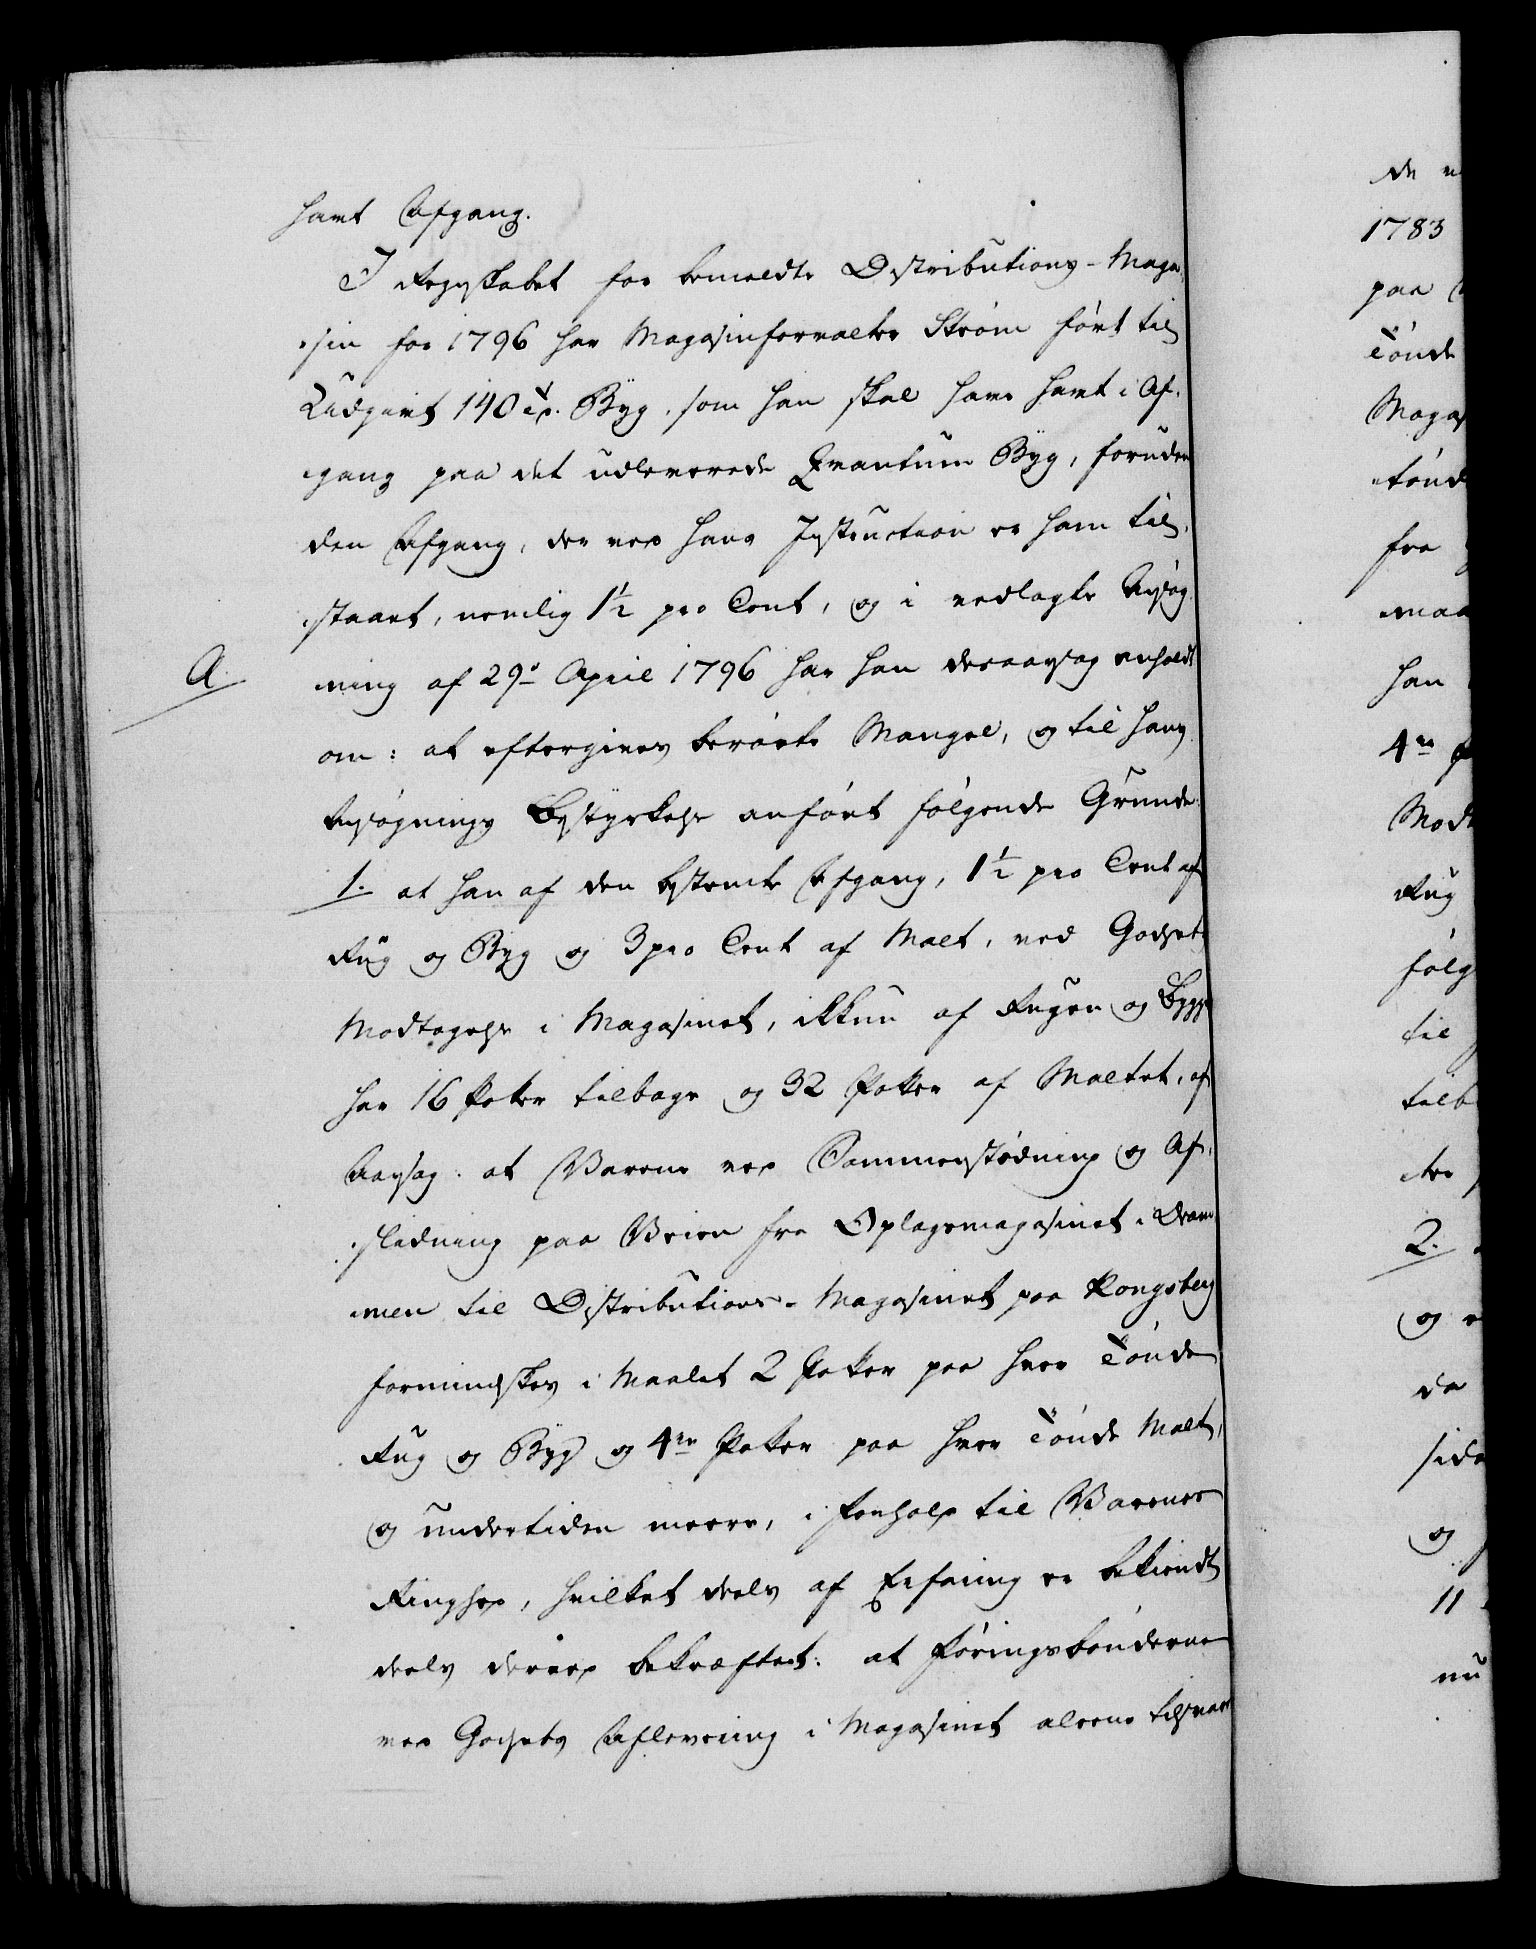 havt Afgang.
I Regnskabet for bemeldte Distributions-Maga-
sin for 1796 har Magasinforvalter Strøm ført til
Udgivt 140 Tdr. Byg, som han skal have havt i Af-
gang paa det udleverede Qvantum Byg, foruden
den Afgang, der ved hans Instruction er ham til-
staaet, nemlig 1½ pro Cent, og i vedlagte Ansøg-
A.
ning af 29de April 1796 har han desaarsag anholdt
om: at eftergives berørte Mangel, og til hans
Ansøgnings Bestyrkelse anført følgende Grunde:
1. at han af den bestemte Afgang, 1½ pro Cent af
Rug og Byg og 3 pro Cent af Malt, ved Godsets
Modtagelse i Magasinet, ikkun af Rugen og Bygget
har 16 Potter tilbage og 32 Potter af Maltet, af
Aarsag: at Varene ved Sammenstødning og Af-
slidning paa Veien fra Oplagsmagasinet i Dram-
men til Distributions-Magasinet paa Kongsberg
formindskes i Maalet 2 Potter paa hver Tønde
Rug og Byg og 4re Potter paa hver Tønde Malt,
og undertiden meere, i Forhold til Varenes
Ringhed, hvilket deels af Erfaring er bekiendt
deels derved bekræftet: at Føringsbønderne
ved Godsets Aflevering i Magasinet aleene tilsvare
de
1783
paa
Tønde
fra
han
4re
Rug
til
2.
og
da
og
11
nu